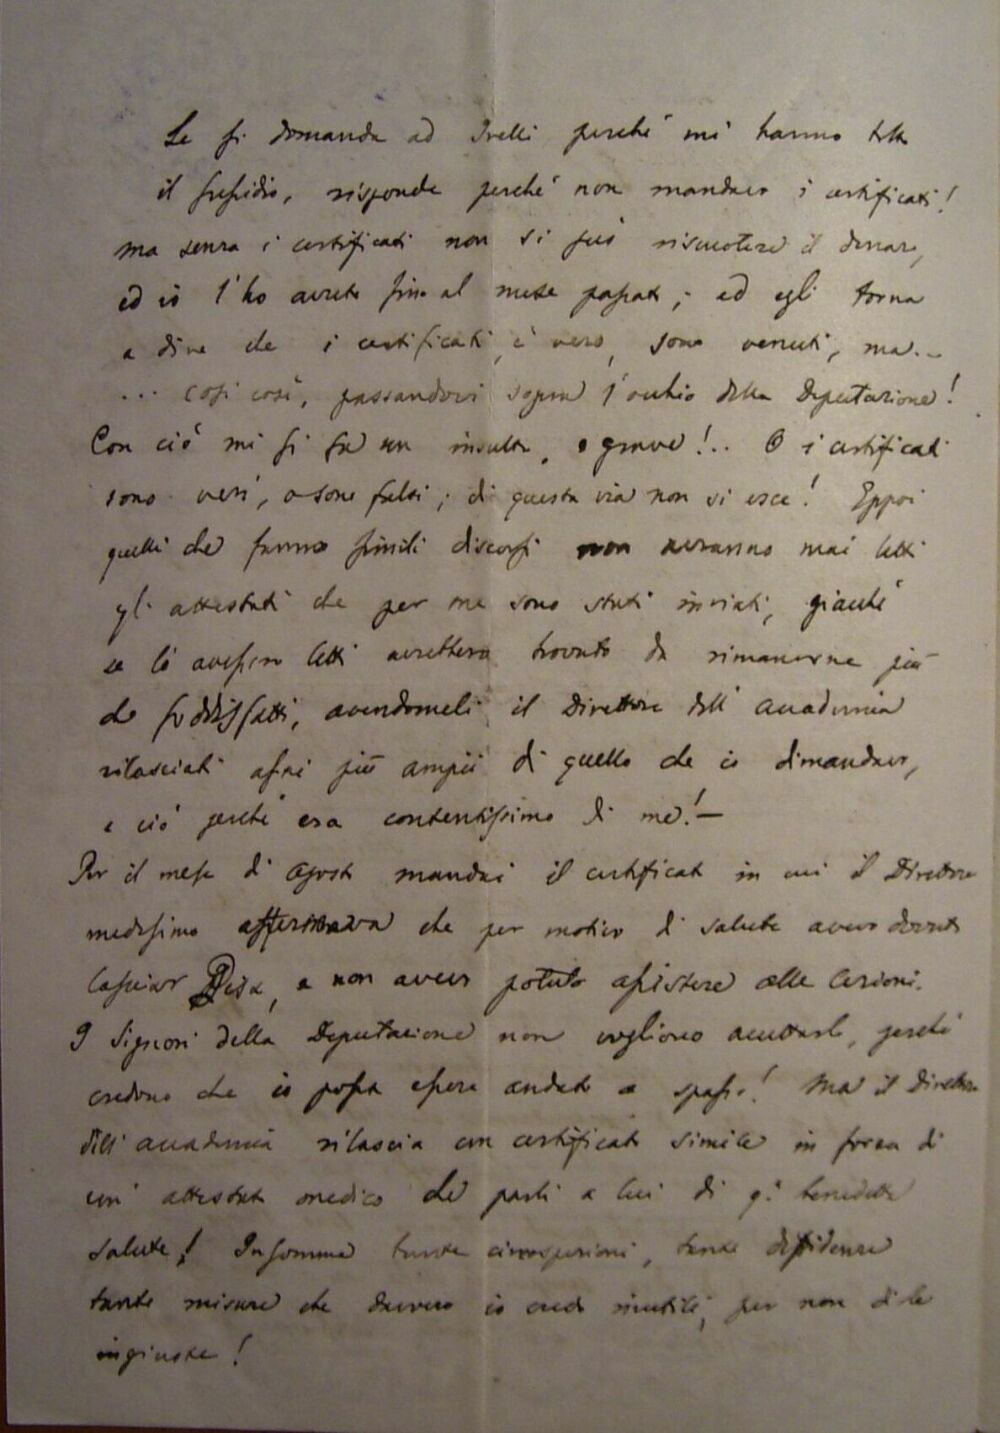 Se si domanda ad Ivelli perché mi hanno tolto
il sussidio, risponde perché non mandavo i certificati!
ma senza i certificati non si può riscuotere il denaro,
ed io l'ho avuto fino al mese passato; ed egli torna
a dire che i certificati, è vero, sono venuti, ma..
... così così, passandovi sopra l'occhio della Deputazione!
Con ciò mi si fa un insulto, e grave!.. O i certificati
sono veri, o sono falsi; di questa via non si esce! Eppoi
quelli che fanno simili discorsi non avranno mai letti
gli attestati che per me sono stati inviati, giacché
se li avessero letti avrebbero trovato da rimanerne più
che soddisfatti, avendomeli il Direttore dell'Accademia
rilasciati assai più ampii di quello che io dimandavo,
e ciò perché era contentissimo di me!—
Per il mese di Agosto mandai il certificato in cui il Direttore
medesimo affermava che per motivo di salute avevo dovuto
lasciar Pisa, e non avevo potuto assistere alle lezioni.
I Signori della Deputazione non vogliono accettarlo, perché
credono che io possa essere andato a spasso! Ma il Direttore
dell'accademia rilascia un certificato simile in forza di
un' attestato medico che parli a lui di q. benedetta
salute! Insomma tante circospezioni, tante diffidenze
tante misure che davvero io credo inutili, per non dirle
ingiuste!